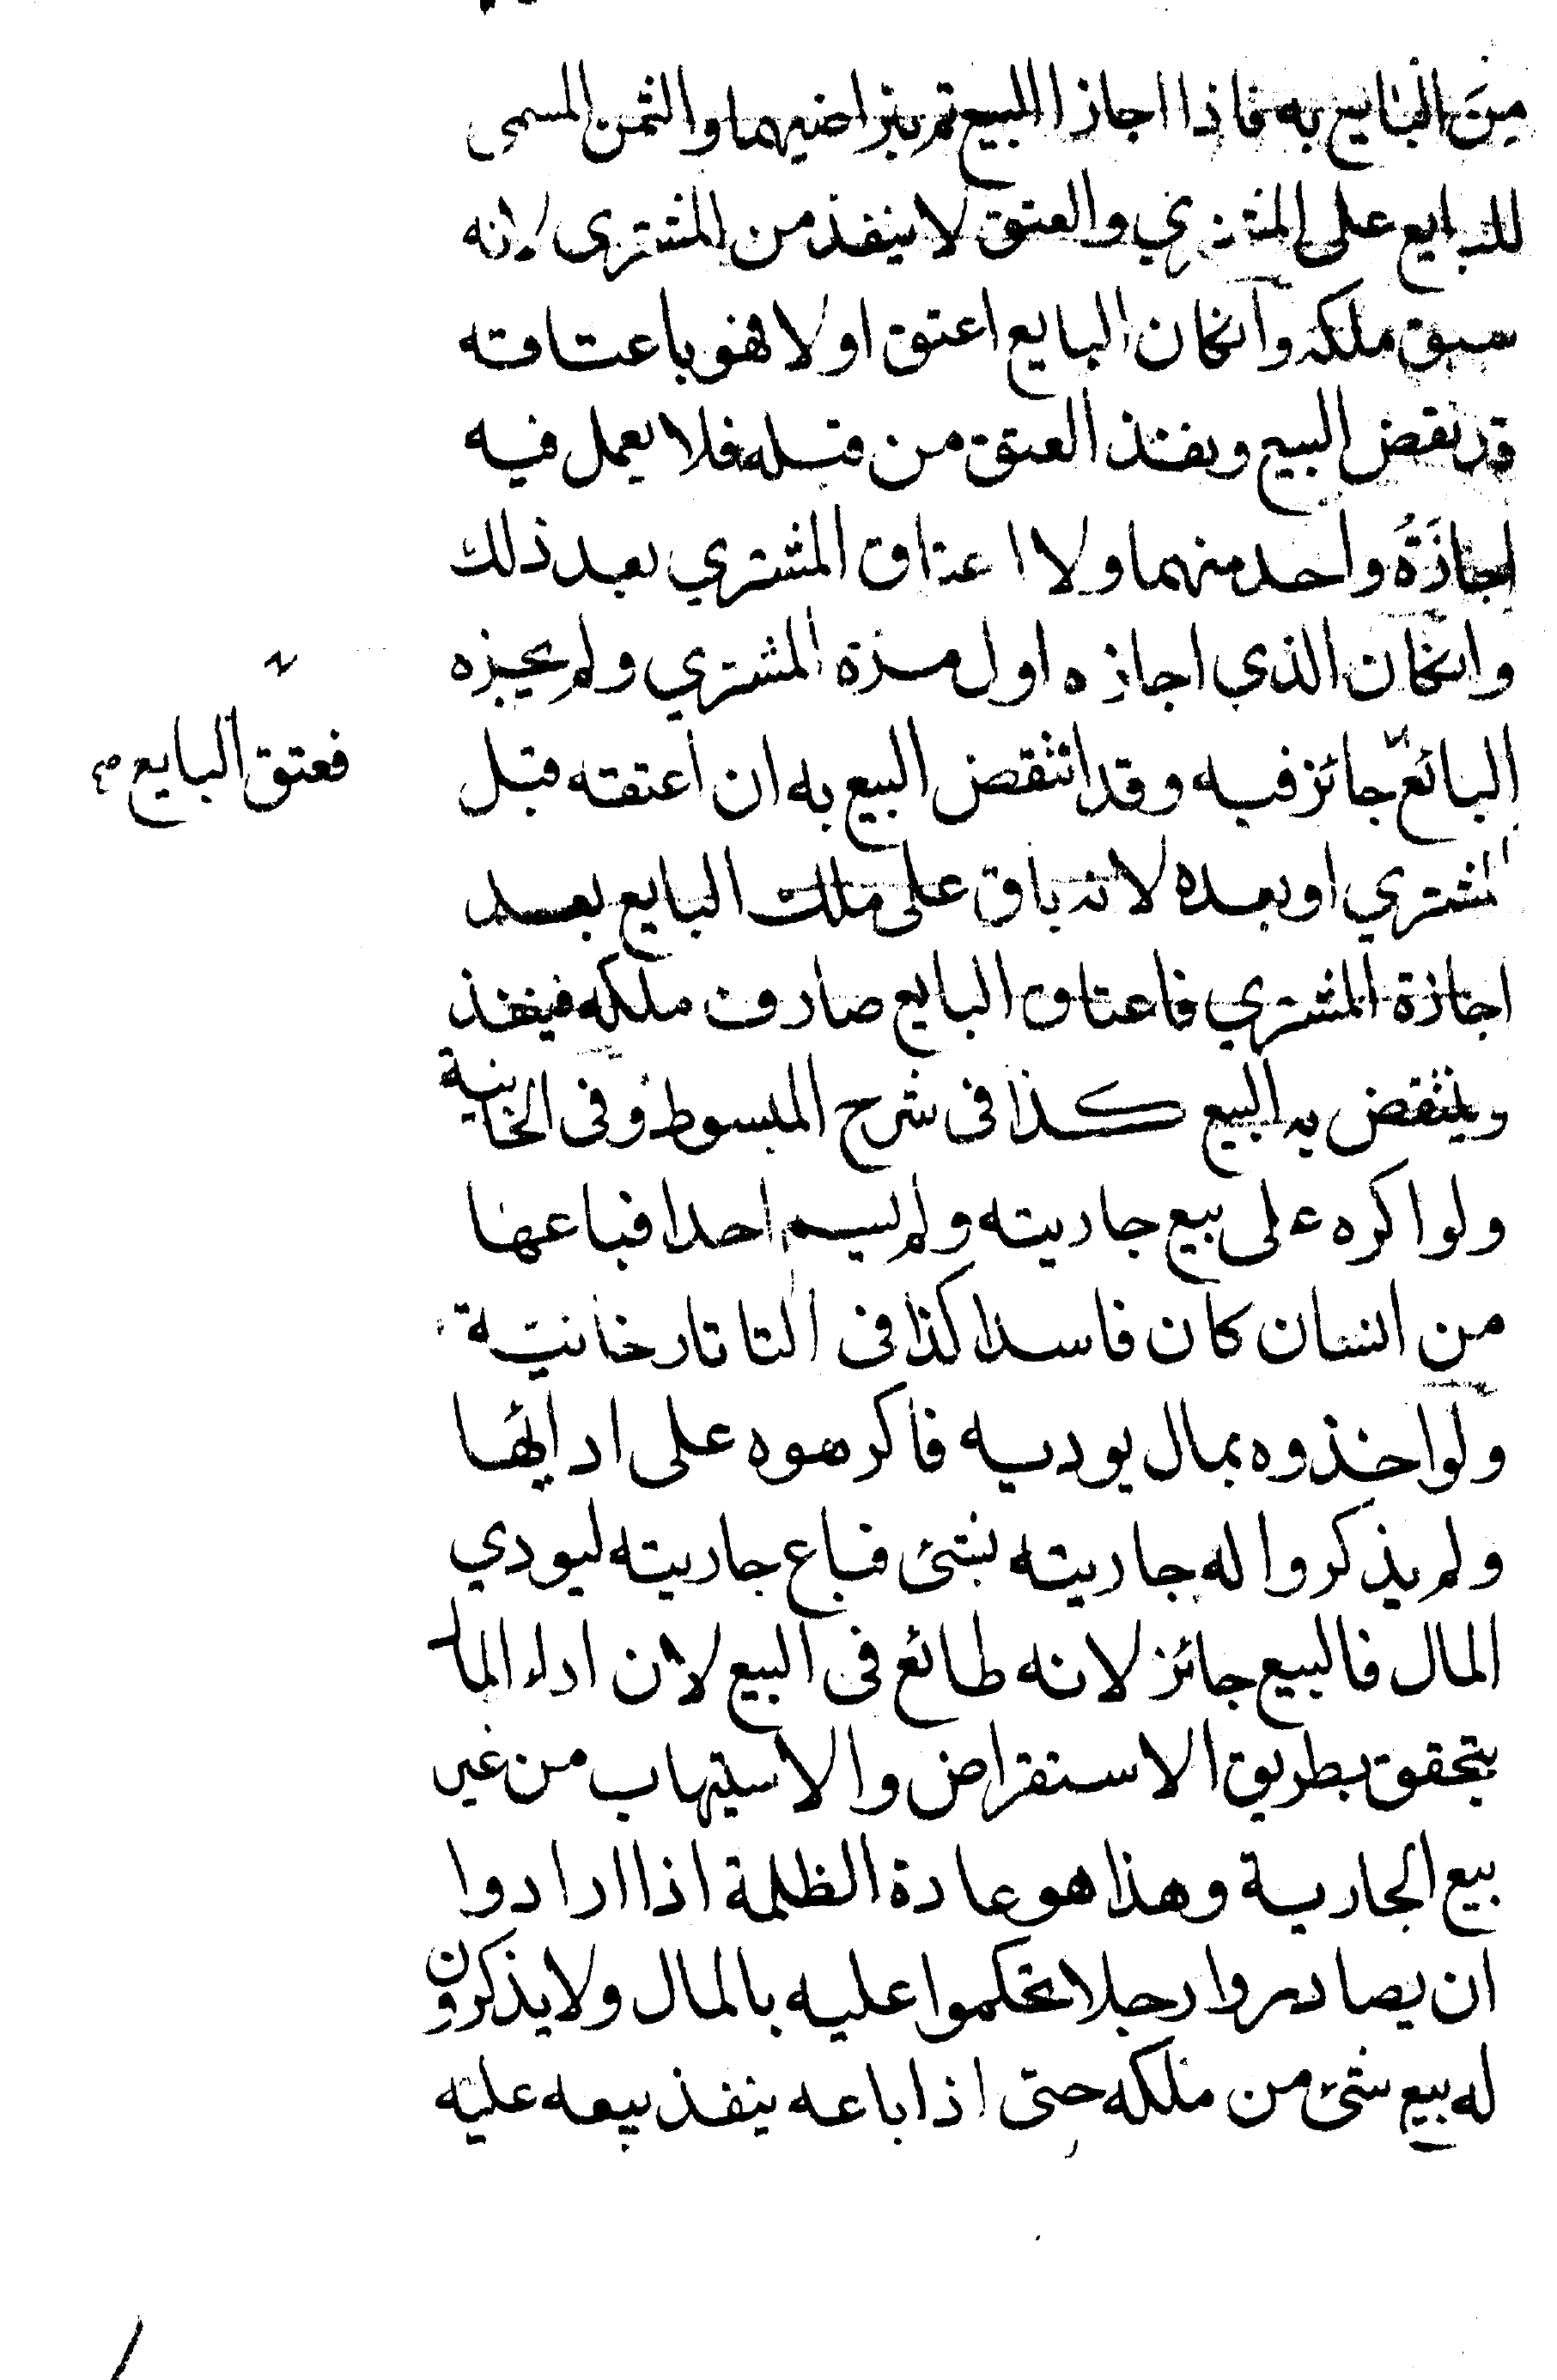 من البايع به فاذا اجاز البيع تم بتراضيهما والثمن المسمى
للبايع على المشتري والعتق لا ينفذ من المشتري لانه
سبق ملكه وانكان البايع اعتق اولا فهو باعتاقه
قد نقض البيع ونفذ العتق من قبله فلا يعمل فيه
اجازة واحد منهما ولا اعتاق المشتري بعد ذلك
وانكان الذي اجازه اول مرة المشتري ولم يجزه
البائع جائز فيه وقد انتقض البيع به ان اعتقه قبل
فعتق البايع صح
المشتري او بعده لانه باق على ملك البايع بعد
اجازة المشتري فاعتاق البايع صادف ملكه فينفذ
وينتقض به البيع كذا في شرح المبسوط وفى الخانية
ولو اكره على بيع جاريته ولم يسم احدا فباعها
من انسان كان فاسدا كذا فى التاتارخانية
ولو اخذوه بمال يوديه فاكرهوه على ادائها
ولم يذكروا له جاريته بشئ فباع جاريته ليودي
المال فالبيع جائز لانه طائع فى البيع لان اداء المال
يتحقق بطريق الاستقراض والاستيهاب من غير
بيع الجارية وهذا هو عادة الظلمة اذا ارادوا
ان يصادروا رجلا تحكموا عليه بالمال ولا يذكرون
له بيع شئ من ملكه حتى اذا باعه ينفذ بيعه عليه